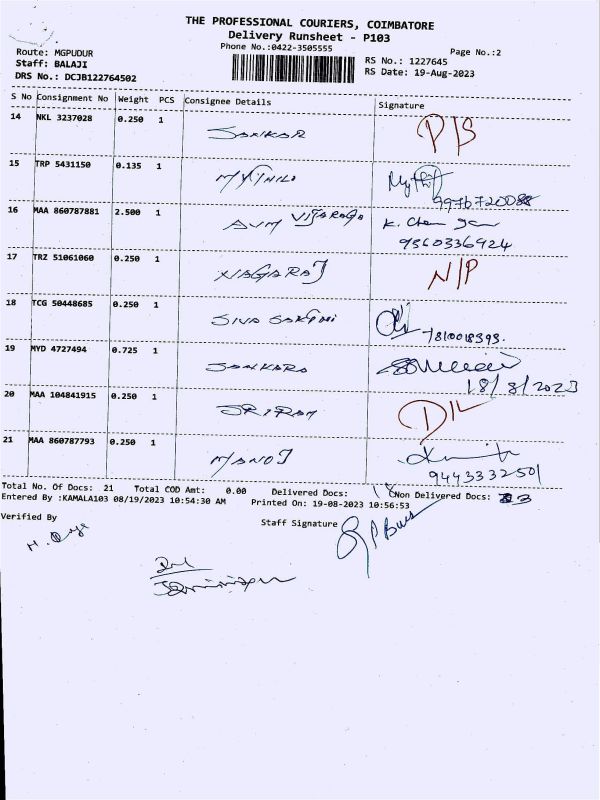 THE PROFESSIONAL COURIERS, COIMBATORE
Delivery Runsheet - P103
Phone No.:0422-3505555
Page No.:2
Route: MGPUDUR
Staff: BALAJI
DRS No.: DCJB122764502
RS No.: 1227645
RS Date: 19-Aug-2023
S No Consignment No Weight PCS Consignee Details Signature
14 NKL 3237028 0.250 1 SANKAR
15 TRP 5431150 0.135 1 MYTHILI
9976720088
16 MAA 860787881 2.500 1 AVM VIJARAGA K.
9360336924
17 TRZ 51061060 0.250 1 NAGARAJ N/P
18 TCG 50448685 0.250 1 SIVA SAKTHI
7810018393.
19 MYD 4727494 0.725 1 SANKARA
18/8/2023
20 MAA 104841915 0.250 1 SRIRAM D/L
21 MAA 860787793 0.250 1 MANOJ
9443332501
Total No. Of Docs: 21 Total COD Amt: 0.00 Delivered Docs: 18 Non Delivered Docs: 3
Entered By :KAMALA103 08/19/2023 10:54:30 AM Printed On: 19-08-2023 10:56:53
Verified By
Staff Signature